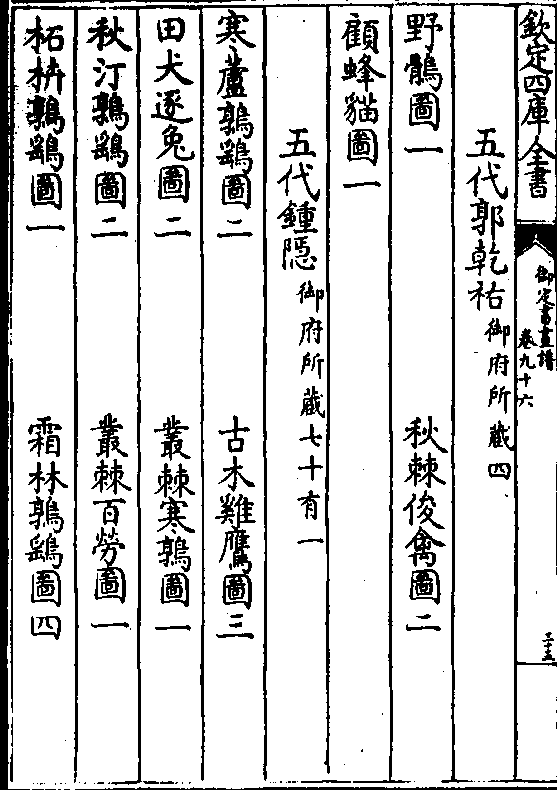 欽定四庫全書
御定書畫譜
卷九十六
三十五
五代郭乾祐御府所藏四
野鶻圖一
秋棘俊禽圖二
顧蜂貓圖一
五代鍾隱御府所藏七十有一
寒蘆鶉鷃圖二
古木雞鷹圖三
田犬逐兔圖二
叢棘寒鶉圖一
秋汀鶉鷃圖二
叢棘百勞圖一
柘枿鶉鷃圖一
霜林鶉鷃圖四